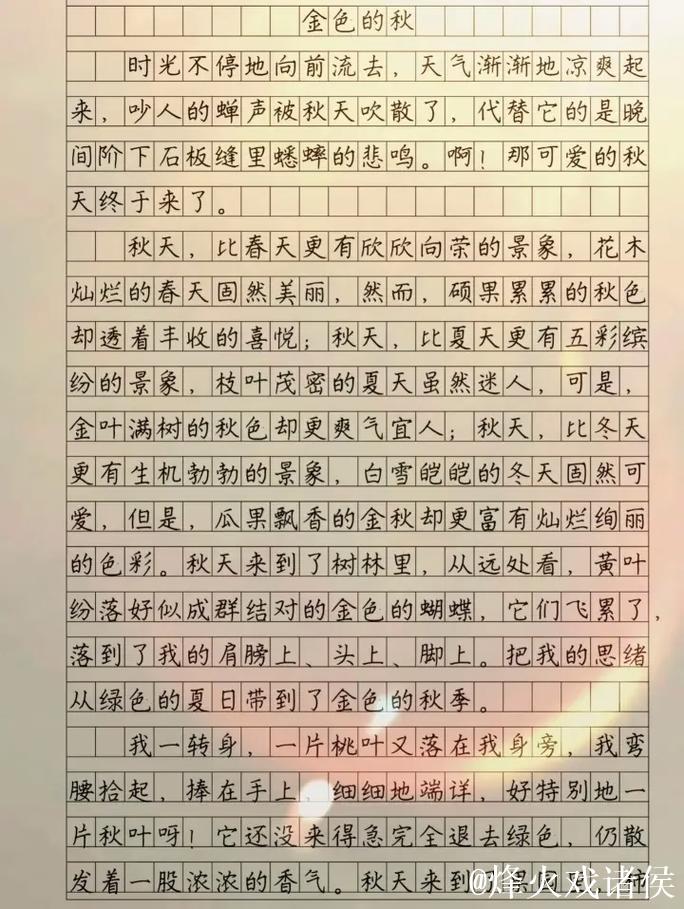 金色的秋
时光不停地向前流去，天气渐渐地凉爽起
来，吵人的蝉声被秋天吹散了，代替它的是晚
间阶下石板缝里蟋蟀的悲鸣。啊！那可爱的秋
天终于来了。
秋天，比春天更有欣欣向荣的景象，花木
灿烂的春天固然美丽，然而，硕果累累的秋色
却透着丰收的喜悦；秋天，比夏天更有五彩缤
纷的景象，枝叶茂密的夏天虽然迷人，可是，
金叶满树的秋色却更爽气宜人；秋天，比冬天
更有生机勃勃的景象，白雪皑皑的冬天固然可
爱，但是，瓜果飘香的金秋却更富有灿烂绚丽
的色彩。秋天来到了树林里，从远处看，黄叶
纷落好似成群结对的金色的蝴蝶，它们飞累了，
落到了我的肩膀上、头上、脚上。把我的思绪
从绿色的夏日带到了金色的秋季。
我一转身，一片桃叶又落在我身旁，我弯
腰拾起，捧在手上，细细地端详，好特别地一
片秋叶呀！它还没来得急完全退去绿色，仍散
发着一股浓浓的香气。秋天来到
@烽火戏诸侯